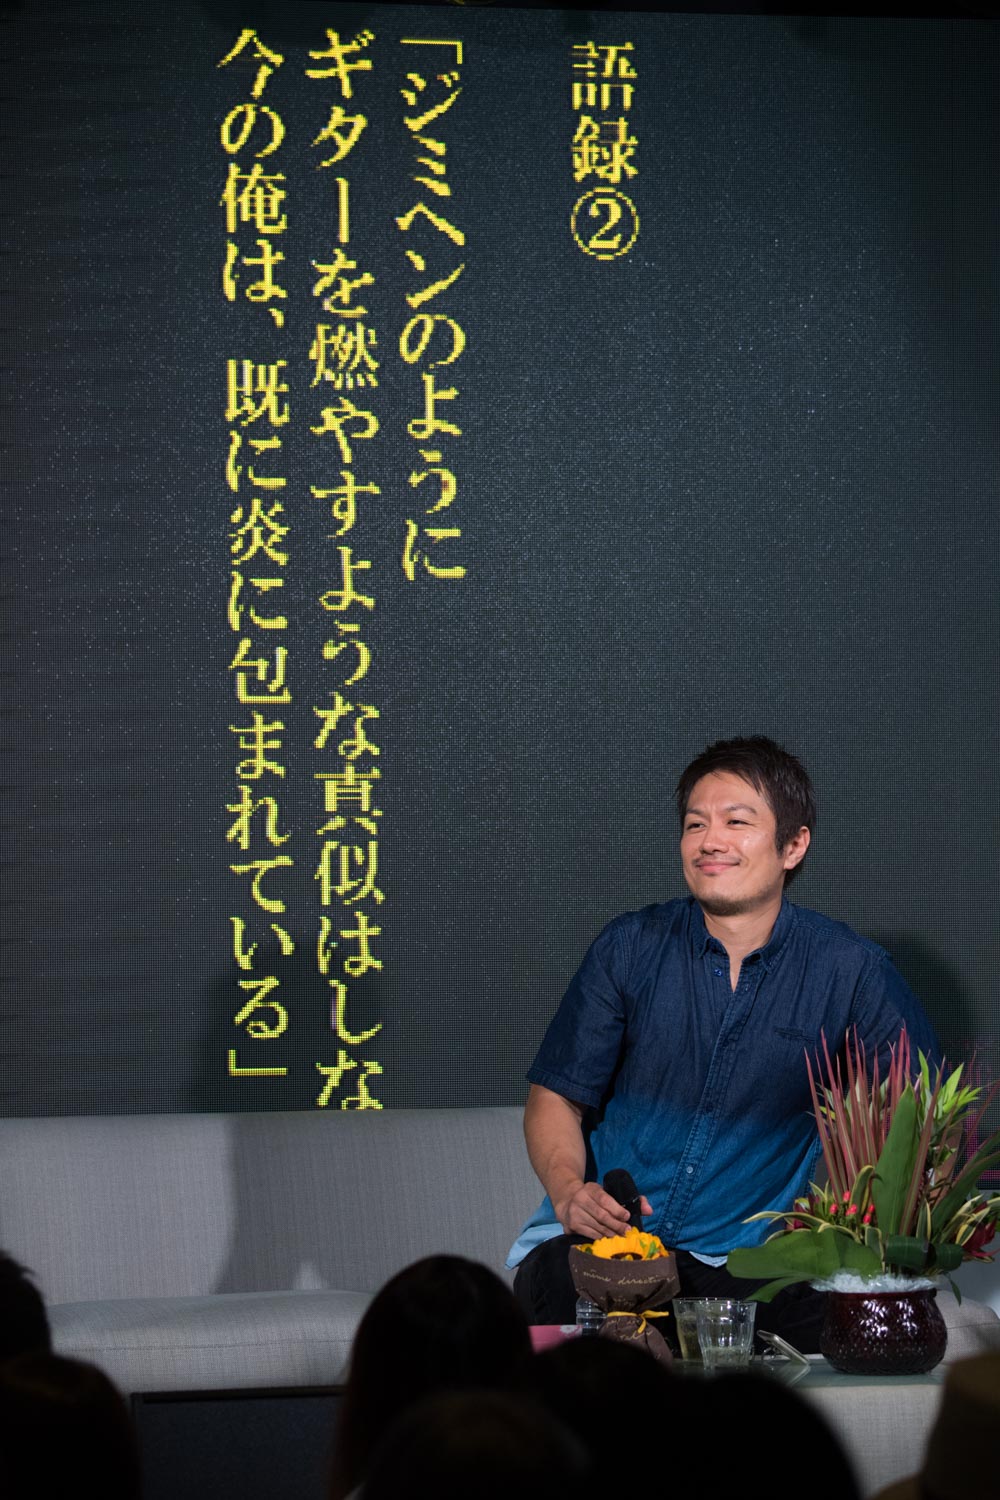 語録②
「ジミヘンのように
ギターを燃やすような真似はしな
今の俺は、既に炎に包まれている」